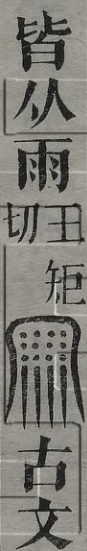 皆从雨王矩切𠕲古文